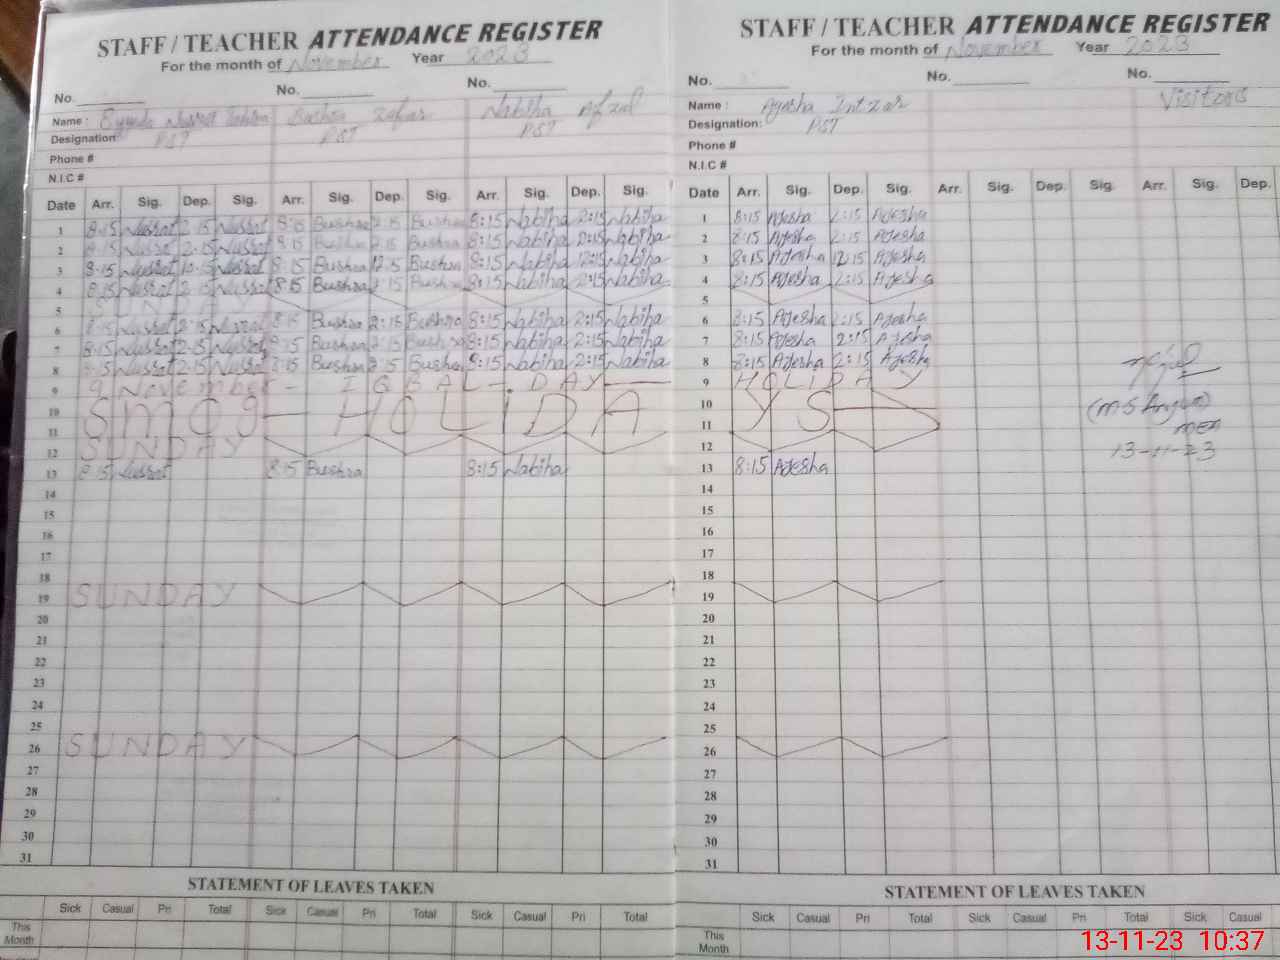 STAFF / TEACHER ATTENDANCE REGISTER
For the month of November Year 2023
No. No. No.
Name : Syeda Nusrat Bushra Zafar Nabiha Afzal
Designation: PST PST PST
Phone #
N.I.C #
Date Arr. Sig. Dep. Sig. Arr. Sig. Dep. Sig. Arr. Sig. Dep. Sig.
1 8:15 Nusrat 2:15 Nusrat 8:15 Bushra 2:15 Bushra 8:15 Nabiha 2:15 Nabiha
2 8:15 Nusrat 2:15 Nusrat 8:15 Bushra 2:15 Bushra 8:15 Nabiha 2:15 Nabiha
3 8:15 Nusrat 12:15 Nusrat 8:15 Bushra 12:15 Bushra 8:15 Nabiha 12:15 Nabiha
4 8:15 Nusrat 2:15 Nusrat 8:15 Bushra 2:15 Bushra 8:15 Nabiha 2:15 Nabiha
5
6 8:15 Nusrat 2:15 Nusrat 8:15 Bushra 2:15 Bushra 8:15 Nabiha 2:15 Nabiha
7 8:15 Nusrat 2:15 Nusrat 8:15 Bushra 2:15 Bushra 8:15 Nabiha 2:15 Nabiha
8 8:15 Nusrat 2:15 Nusrat 8:15 Bushra 2:15 Bushra 8:15 Nabiha 2:15 Nabiha
9 9 November - IQBAL - DAY
10 SMOG - HOLIDA
11
12 SUNDAY
13 8:15 Nusrat 8:15 Bushra 8:15 Nabiha
14
15
16
17
18
19 SUNDAY
20
21
22
23
24
25
26 SUNDAY
27
28
29
30
31
STATEMENT OF LEAVES TAKEN
Sick Casual Pri Total Sick Casual Pri Total Sick Casual Pri Total
This Month
STAFF / TEACHER ATTENDANCE REGISTER
For the month of November Year 2023
No. No. No.
Name : Ayesha Intzar Visitors
Designation: PST
Phone #
N.I.C #
Date Arr. Sig. Dep. Sig. Arr. Sig. Dep. Sig. Arr. Sig. Dep.
1 8:15 Ayesha 2:15 Ayesha
2 8:15 Ayesha 2:15 Ayesha
3 8:15 Ayesha 12:15 Ayesha
4 8:15 Ayesha 2:15 Ayesha
5
6 8:15 Ayesha 2:15 Ayesha
7 8:15 Ayesha 2:15 Ayesha
8 8:15 Ayesha 2:15 Ayesha
9 HOLIDAY
10 YS
11 MEA
12 13-11-23
13 8:15 Ayesha
14
15
16
17
18
19
20
21
22
23
24
25
26
27
28
29
30
31
STATEMENT OF LEAVES TAKEN
Sick Casual Pri Total Sick Casual Pri Total Sick Casual
This Month
13-11-23 10:37